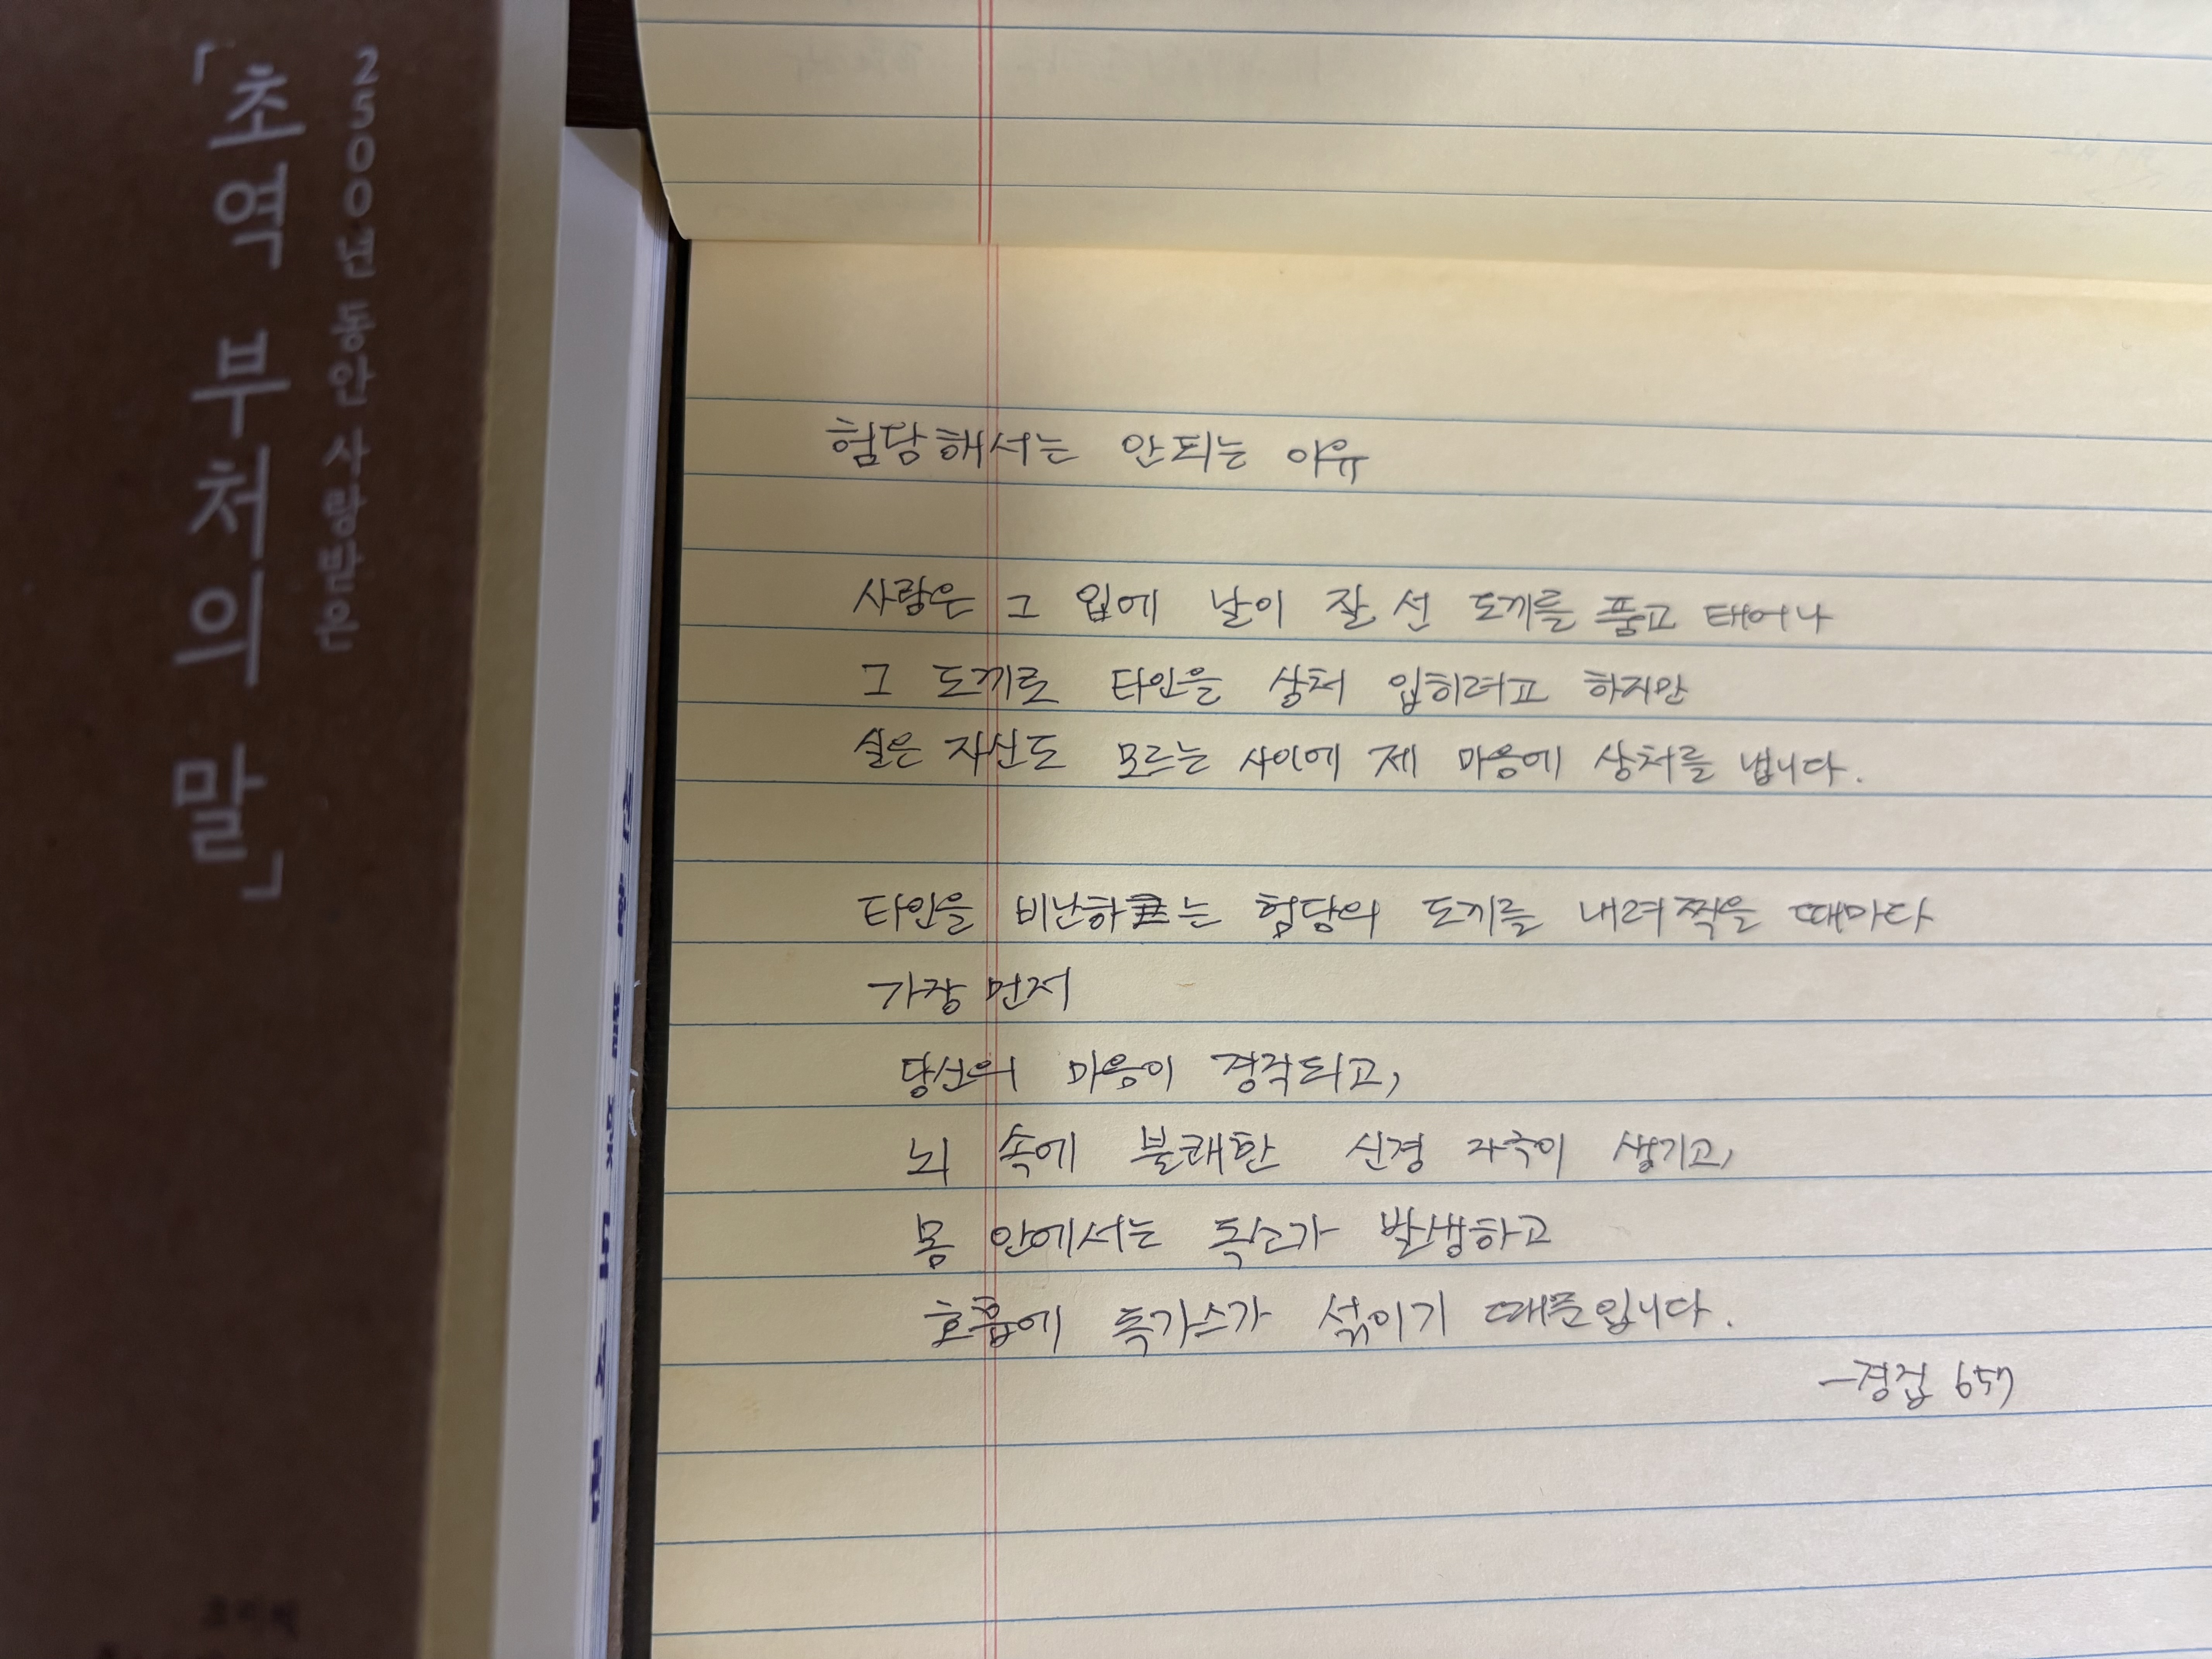 2500년 동안 사랑받은
「초역 부처의 말」
험담해서는 안되는 이유
사람은 그 입에 날이 잘 선 도끼를 품고 태어나
그 도끼로 타인을 상처 입히려고 하지만
실은 자신도 모르는 사이에 제 마음에 상처를 냅니다.
타인을 비난하는 험담의 도끼를 내려찍을 때마다
가장 먼저
당신의 마음이 경직되고,
뇌 속에 불쾌한 신경 자극이 생기고,
몸 안에서는 독소가 발생하고
호흡에 독가스가 섞이기 때문입니다.
-경집 657